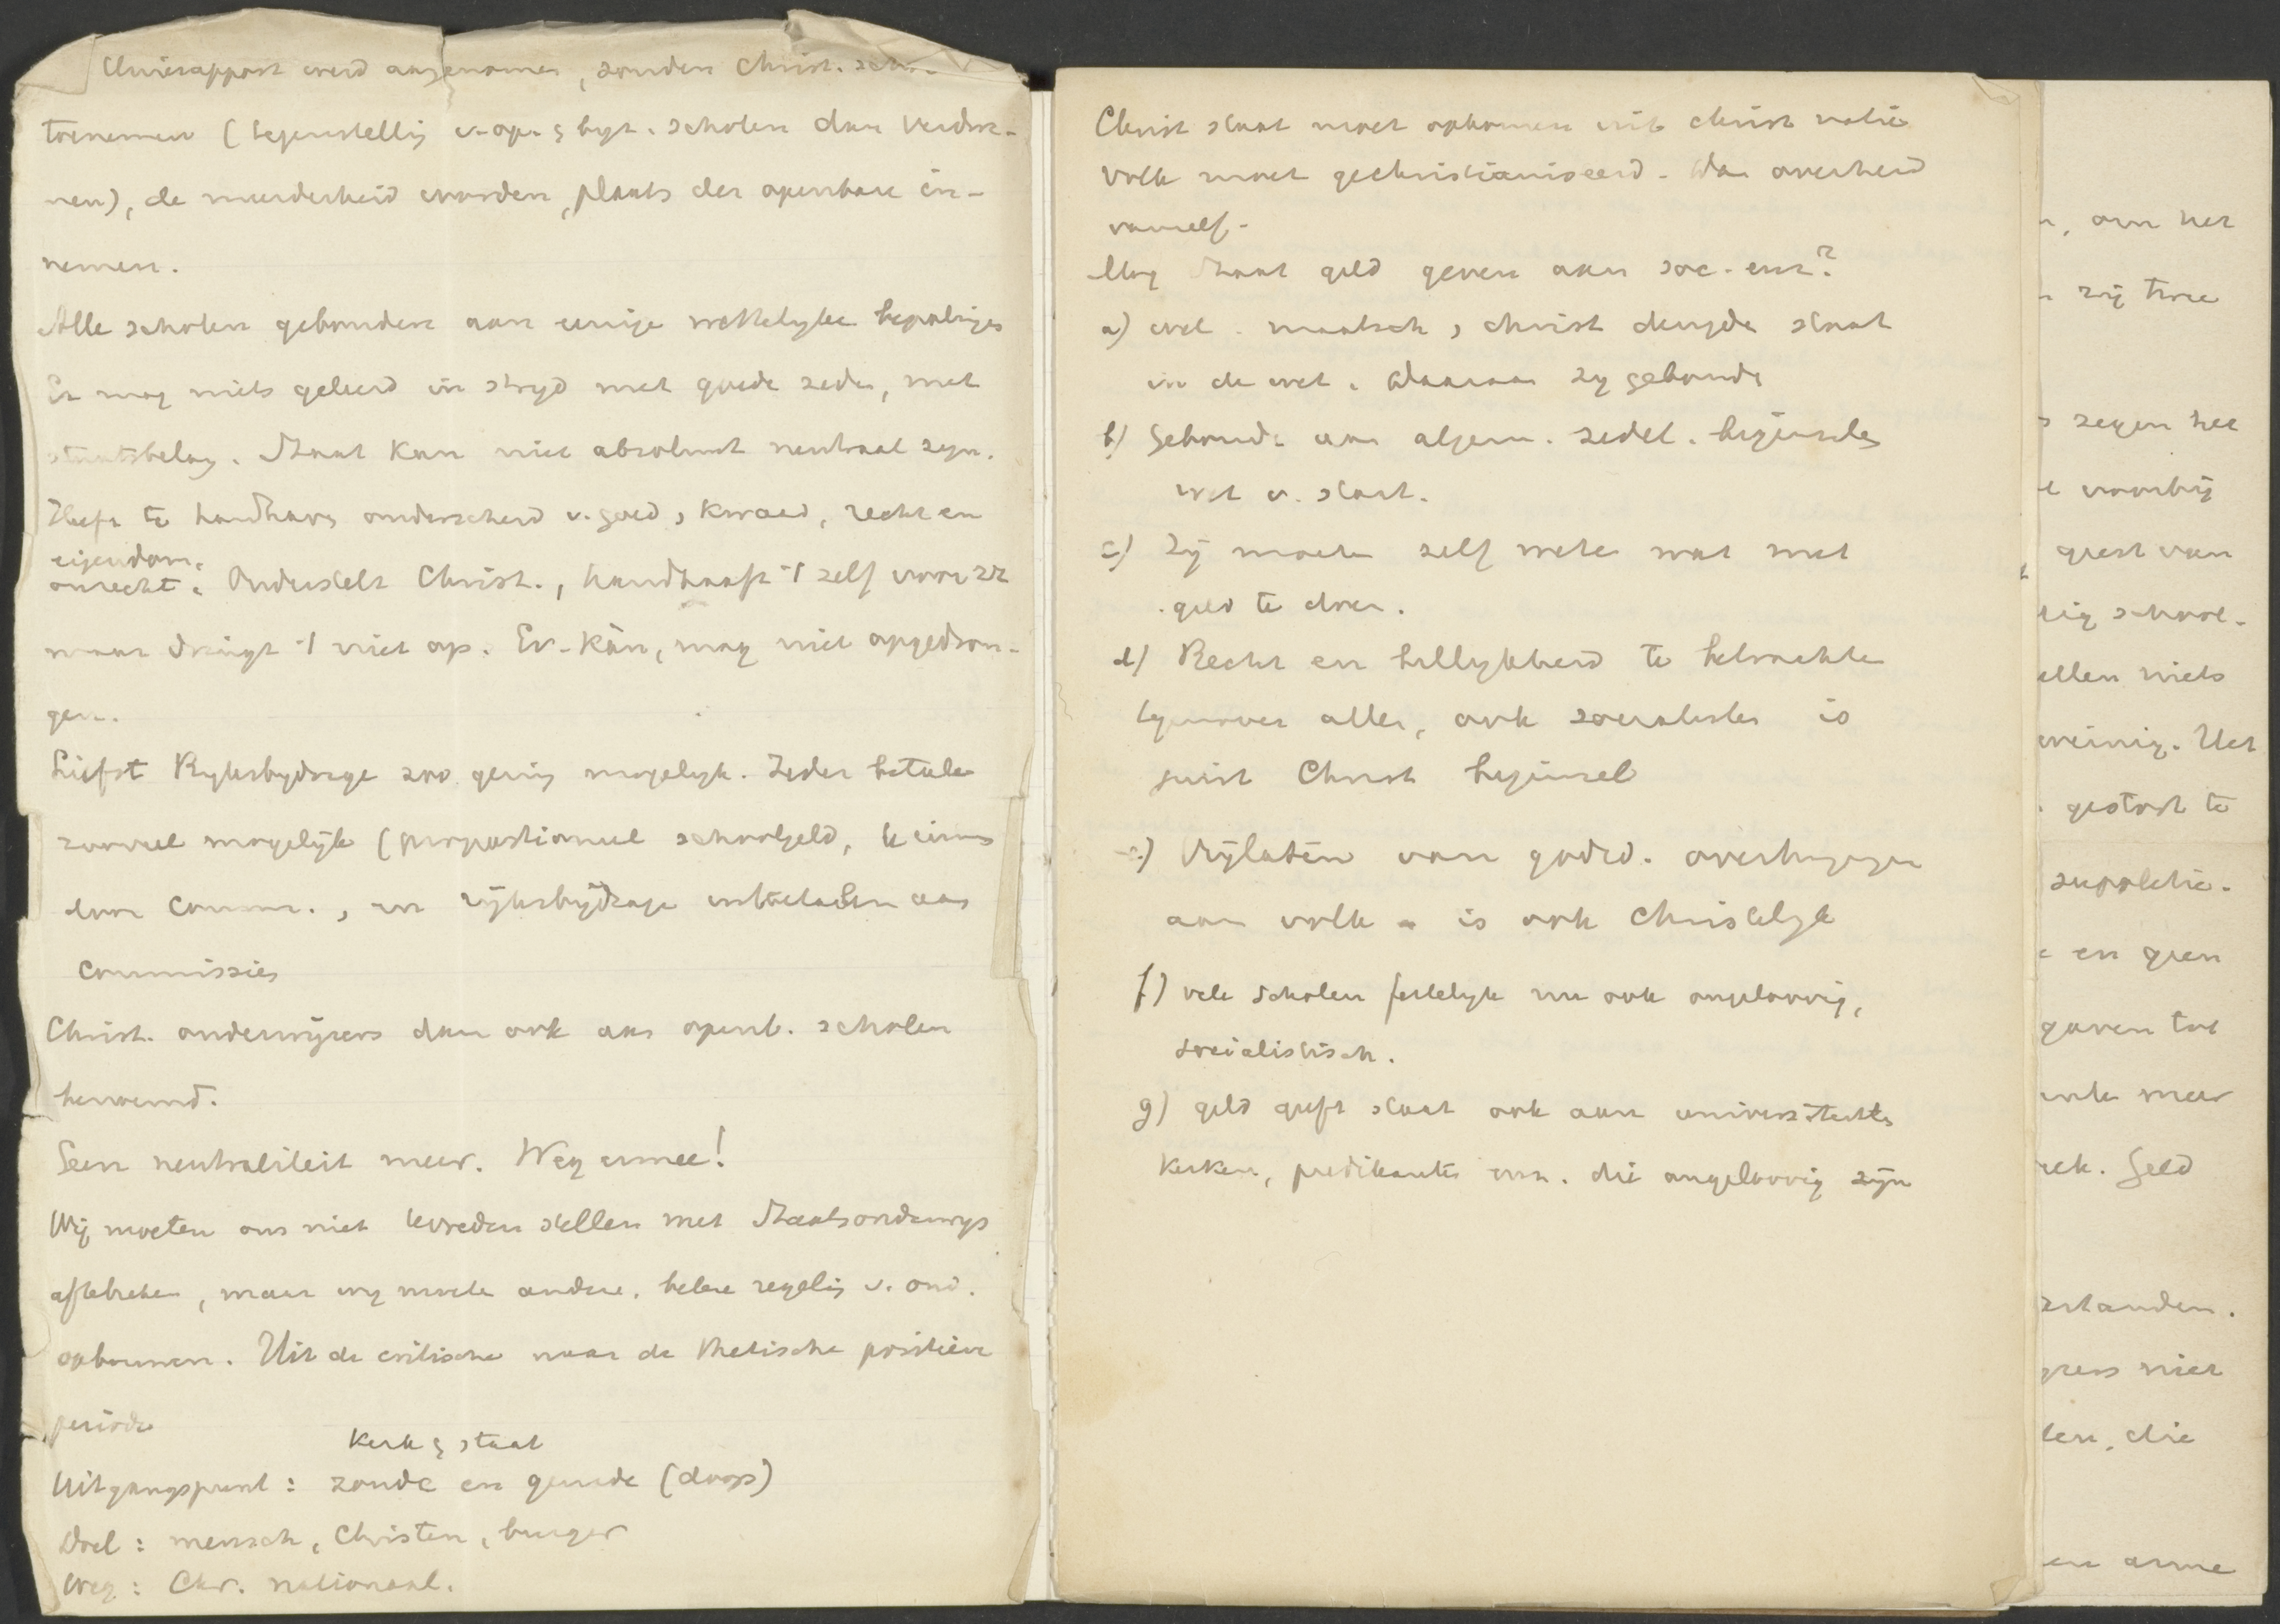 Unierapport werd aangenomen, zouden Christ. scho-
toenemen ( tegenstelling v. op. & byz. scholen dan verdwe-
nen), de meerderheid worden, plaats der openbare in-
nemen.
Alle scholen gebonden aan eenige wettelyke bepalinges
Er mag niets geleerd in stryd met goede zeden, met
staatsbelang. Staat kan niet absoluut neutraal zyn.
Heeft te handhaven onderscheid v. goed, kwaad, recht en
eigendom.
onrecht. Onderstelt Christ., handhaaft 't zelf voor zz
maar dringt 't niet op. Ev. kàn, mag niet opgedron-
gen.
Liefst Ryksbydrage zoo gering mogelyk. Ieder betale
zooveel mogelijk (proportioneel schoolgeld, te innen
door comm., en rijksbijdrage uitbetalen aan
commissies
Christ. onderwijzers dan ook aan openb. scholen
benoemd.
Geen neutraliteit meer. Weg ermee!
Wij moeten ons niet tevreden stellen met Staatsonderwys
afbreken, maar wy moeten andere, betere regeling v. ond.
opbouwen. Uit de critische naar de thetische positieve
periode
Kerk & staat
Uitgangspunt : zonde en genade (doop)
Doel : mensch, Christen, burger
Weg : Chr. nationaal.
Christ staat moet opkomen uit christ natie
Volk moet gechristianiseerd. Dan overheid
vanzelf.
Mag Staat geld geven aan soc. enz?
a) wel. maatsch, christ deugden staat
in de wet. Waaraan zy gebonden
b) Gebonden aan algem. zedel. beginselen
wet v. staat.
c) Zij moeten zelf weten wat met
geld te doen.
d) Recht en billykheid te betrachten
tegenover allen, ook socialisten is
juist Christ beginsel
e) Vrijlaten van godsd. overtuigingen
aan volk is ook Christelyk
f) vele scholen feitelyk nu ook ongeloovig,
socialistisch.
g) geld geeft staat ook aan universiteiten
Kerken, predikanten enz. die ongeloovig zijn
, om het
zij twee
zegen het
voorbij
geest van
school-
ellen niets
weinig. Het
gestort te
suppletie.
en geen
gaven tot
meer
Geld
standen.
niet
len, die
en arme